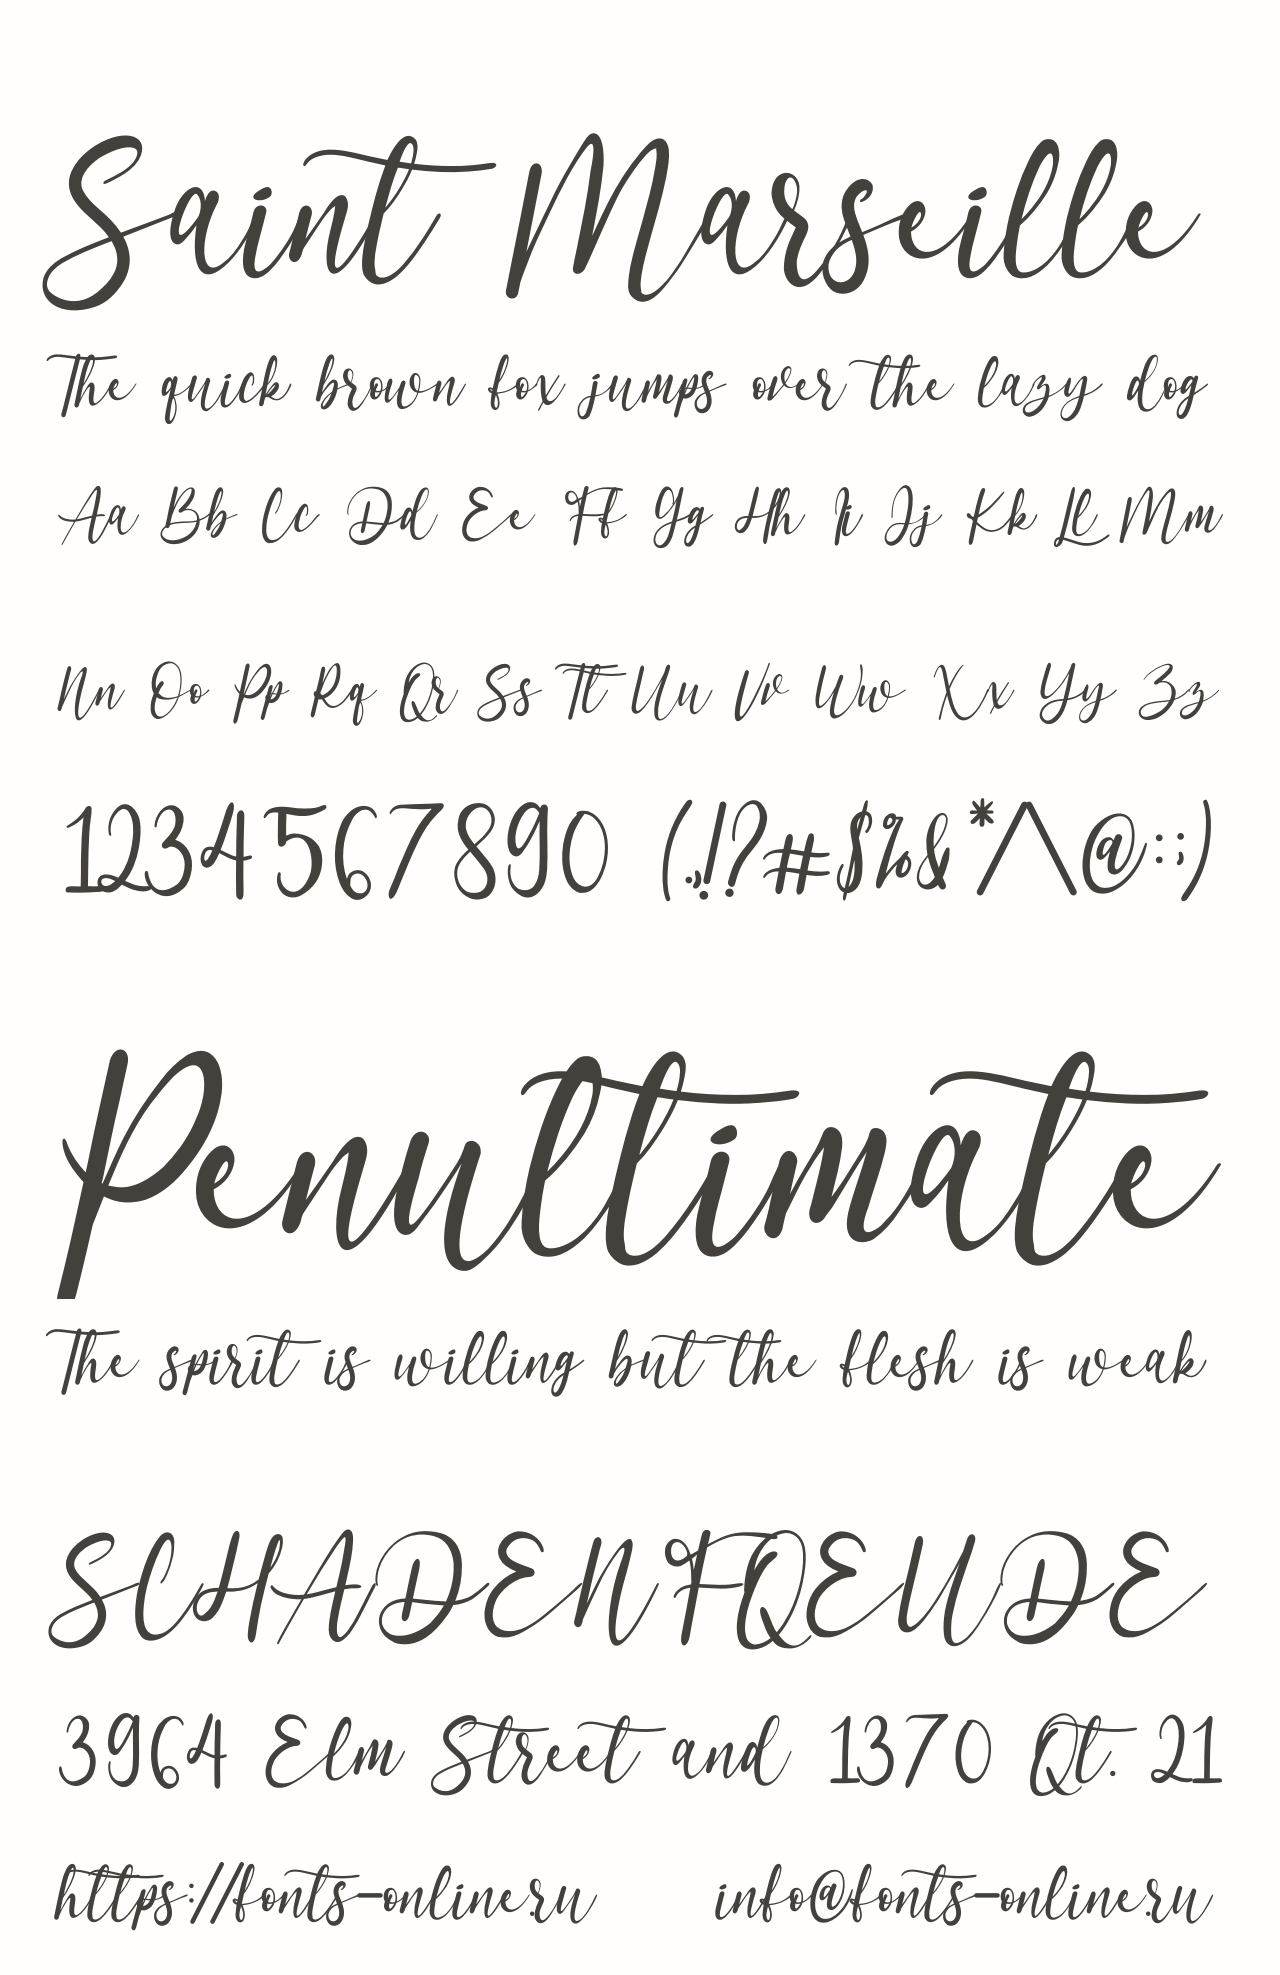 Saint Marseille
The quick brown fox jumps over the lazy dog
Aa Bb Cc Dd Ee Ff Gg Hh Ii Jj Kk Ll Mm
Nn Oo Pp Rq Qr Ss Tt Uu Vv Ww Xx Yy Zz
1234567890 (.,!?#$%&*/\@:;)
Penultimate
The spirit is willing but the flesh is weak
SCHADENFQEUDE
3964 Elm Street and 1370 Qt. 21
https://fonts-online.ru info@fonts-online.ru